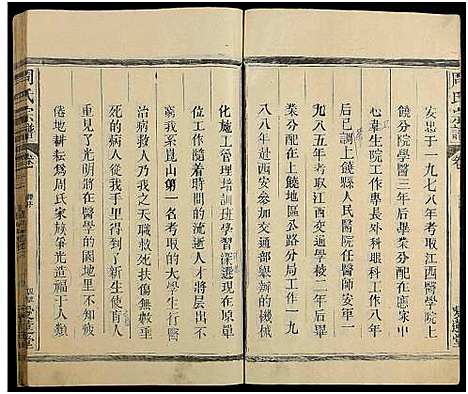 周氏宗譜
卷
安忠于一九七八年考取江西醫學院上
饒分院學醫三年后畢業分配在應家中
心衛生院工作外科眼科工作八年
后已調上饒縣人民醫院任醫師安軍一
九八五年考取江西交通學校二年后畢
業分配在上饒地區公路分局工作一九
八八年赴西安參加交通部舉辦的機械
化施工管理培訓班學習深造現在原單
位工作隨着時間的流逝人才將層出不
窮我系崑山第一名考取的大學生行醫
治病救人乃我之天職救死扶傷無數垂
死的病人從我手里得到了新生使無數
盲人見了光明將在醫學的園地里不
倦地耕耘為周氏家族爭光造福于人類
周氏宗譜
卷
愛蓮堂